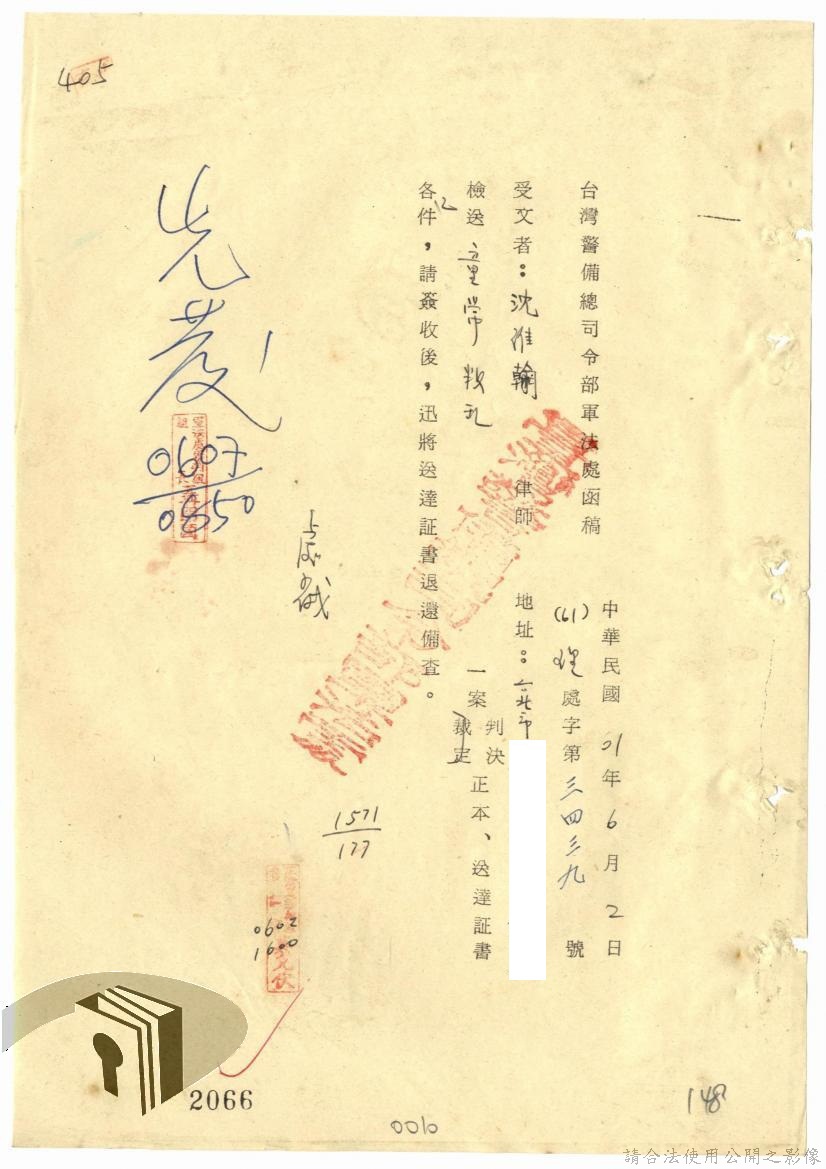 405
台灣警備總司令部軍法處函稿
中華民國 61年6月2日
(61)理處字第三四三九號
受文者：沈維翰 律師 地址：台北市
檢送 童常 叛亂 一案 判決 裁定 正本、送達証書
各乙件，請簽收後，迅將送達証書退還備查。
先發
0607
0850
1571
177
0602
1600
2066
0010
148
請合法使用公開之影像